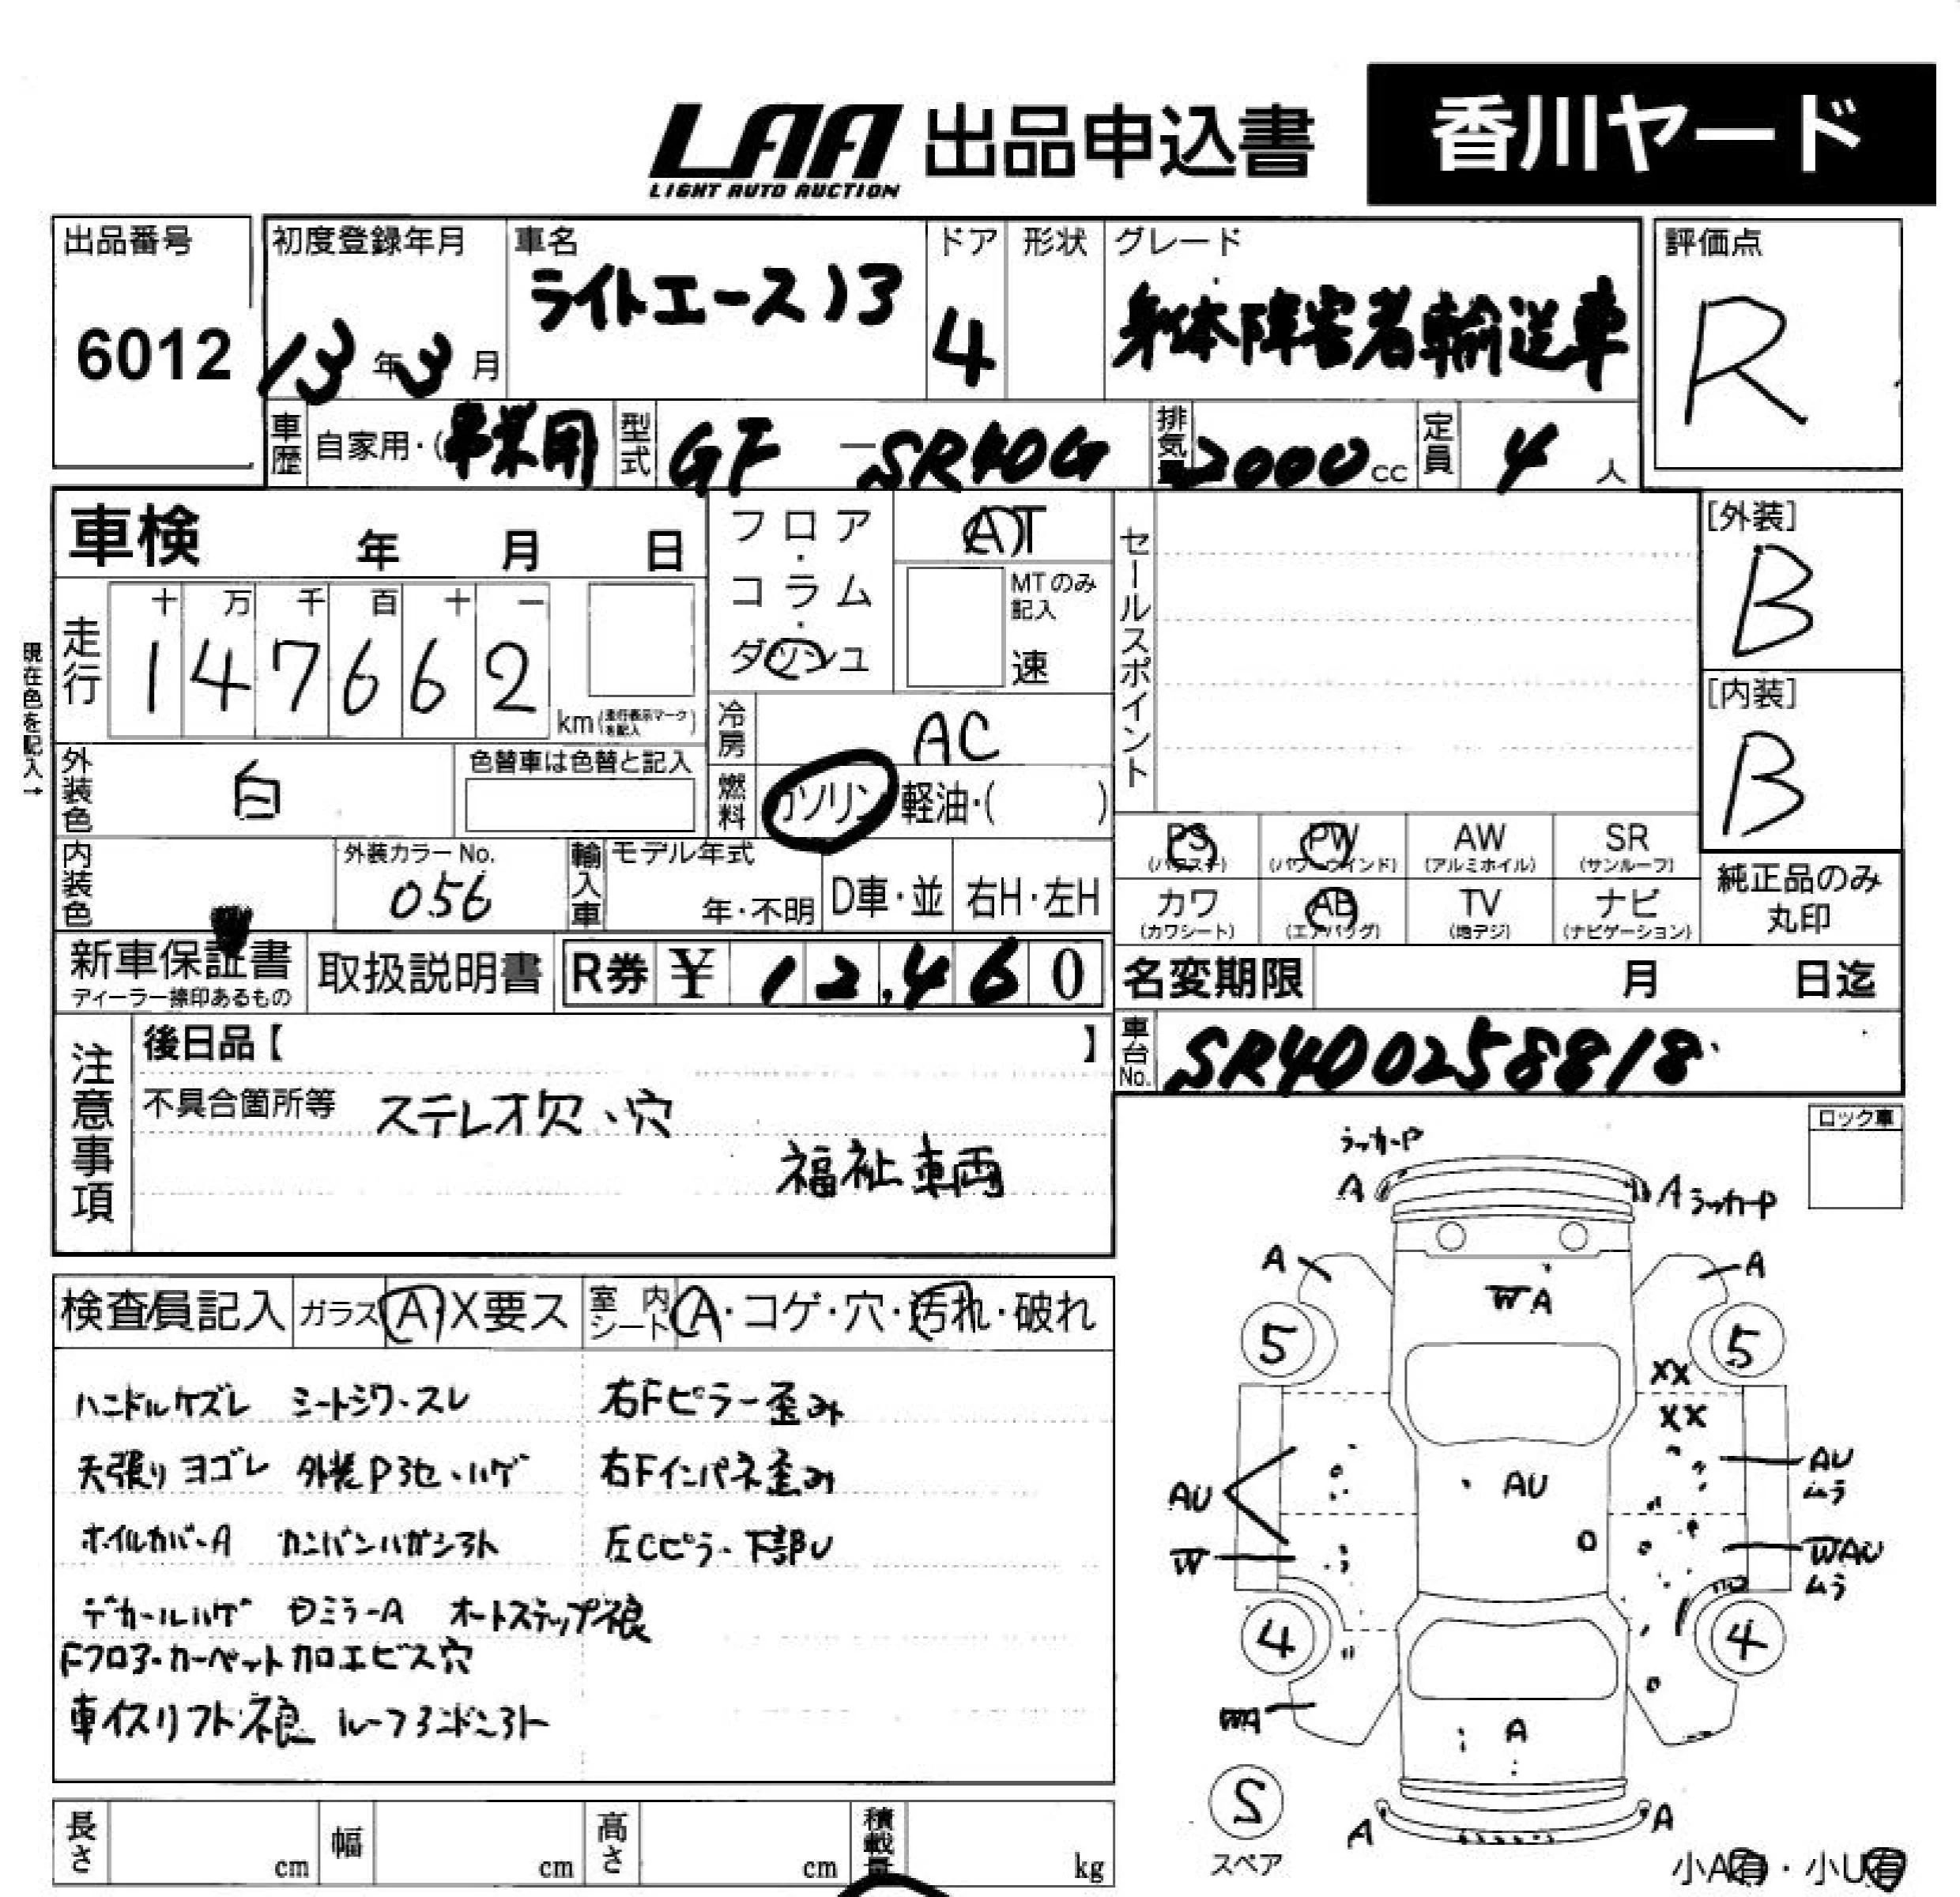 LAA 出品申込書 香川ヤード
LIGHT AUTO AUCTION
出品番号 初度登録年月 車名 ドア 形状 グレード 評価点
6012 13年3月 ライトエースノア 4 身体障害者輸送車 R
車歴 自家用・(事業用 型式 GF-SR40G 排気量 2000cc 定員 4人
車検 年 月 日 フロア・コラム・ダッシュ AT セールスポイント [外装]
B
MTのみ記入
速
走行 十 万 千 百 十 一
147662 km(走行表示マークを記入) 冷房 AC [内装]
B
現在色を記入↑
外装色 白 色替車は色替と記入 燃料 ガソリン 軽油・( )
PS PW AW SR
(パワステ) (パワーウインド) (アルミホイル) (サンルーフ)
内装色 外装カラーNo. 056 輸入車 モデル年式 年・不明 D車・並 右H・左H
カワ AB TV ナビ 純正品のみ丸印
(カワシート) (エアバッグ) (地デジ) (ナビゲーション)
新車保証書 取扱説明書 R券 ¥ 12,460 名変期限 月 日迄
ディーラー捺印あるもの
注意事項 後日品【 】 車台No. SR400258818
不具合箇所等 ステレオ欠、穴
福祉車両
ロック車
検査員記入 ガラス A・X要ス 室内シート A・コゲ・穴・汚れ・破れ
ハンドルケズレ シートシワ・スレ 右Fピラー歪み
天張りヨゴレ 外装Pヨセ、ハゲ 右Fインパネ歪み
ホイルカバーA カンバンハガシアト 左Cピラー下部U
デカールハゲ Dミラ-A オートステップ不良
Fフロアーカーペット加工ビス穴
車イスリフト不良 ルーフアンテナアト
ラッカーP
A A ラッカーP
A A
W A
5 5
XX
XX
AU AU AU
ムラ
W WAU
ムラ
4 4
A
S
スペア
A A
長さ cm 幅 cm 高さ cm 積載量 kg
小A有・小U有